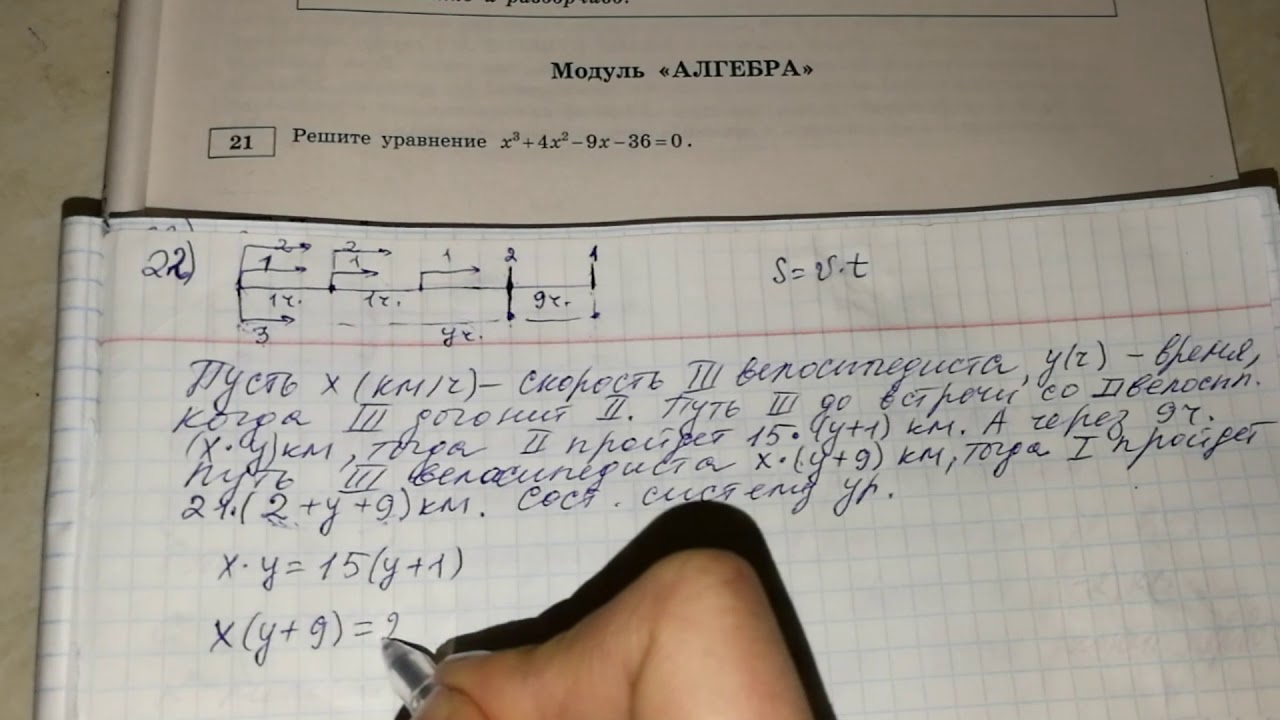 Модуль «АЛГЕБРА»
21 Решите уравнение x³+4x²−9x−36=0.
22)
2 2 1 2 1
1 1
1ч. 1ч. 9ч.
3 yч.
S=v·t
Пусть x (км/ч) – скорость III велосипедиста, y(ч) – время,
когда III догонит II. Путь III до встречи со II велосип.
(x·y)км, тогда II пройдет 15·(y+1) км. А через 9ч.
путь III велосипедиста x·(y+9) км, тогда I пройдет
21·(2+y+9)км. Сост. систему ур.
x·y=15(y+1)
x(y+9)=2